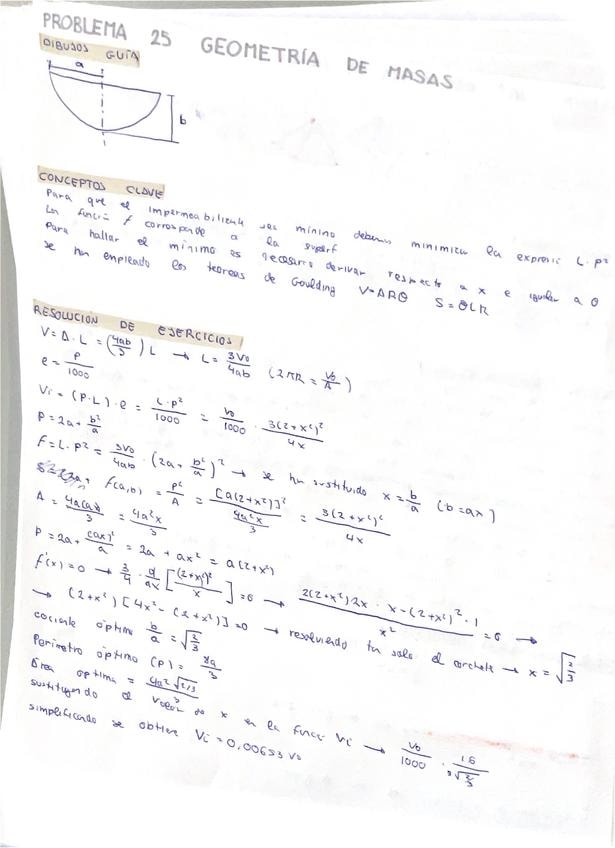 PROBLEMA 25 GEOMETRÍA DE MASAS
DIBUJOS GUÍA
a
b
CONCEPTOS CLAVE
Para que el impermeabilizante sea mínino debemos minimizar la expresió L·P²
La funció f corresponde a la superf
Para hallar el mínimo es necesario derivar respecto a x e igualar a 0
se han empleado los teoremas de Goulding V=ARθ S=θLR
RESOLUCIÓN DE EJERCICIOS
V = A·L = (4ab/3) L → L = 3V₀/4ab (2πR = V₀/A)
e = P/1000
Vi = (P·L)·e = L·P²/1000 = V₀/1000 · 3(2+x²)²/4x
P = 2a + b²/a
F = L·P² = 3V₀/4ab · (2a + b²/a)² → se ha sustituido x = b/a (b=ax)
f(a,b) = P²/A = [a(2+x²)]²/(4a²x/3) = 3(2+x²)²/4x
A = 4a(ax)/3 = 4a²x/3
P = 2a + (ax)²/a = 2a + ax² = a(2+x²)
f'(x) = 0 → 3/4 · d/dx [(2+x²)²/x] = 0 → (2(2+x²)2x · x - (2+x²)² · 1)/x² = 0 →
→ (2+x²)[4x² - (2+x²)] = 0 → resolviendo tan solo el corchete → x = √(2/3)
cociente óptimo b/a = √(2/3)
Perímetro óptimo (P) = 8a/3
Área óptima = 4a²√(2/3)/3
sustituyendo el valor de x en la funció Vi → V₀/1000 · 16/(3√(2/3))
simplificado se obtiene Vi = 0,00653 V₀